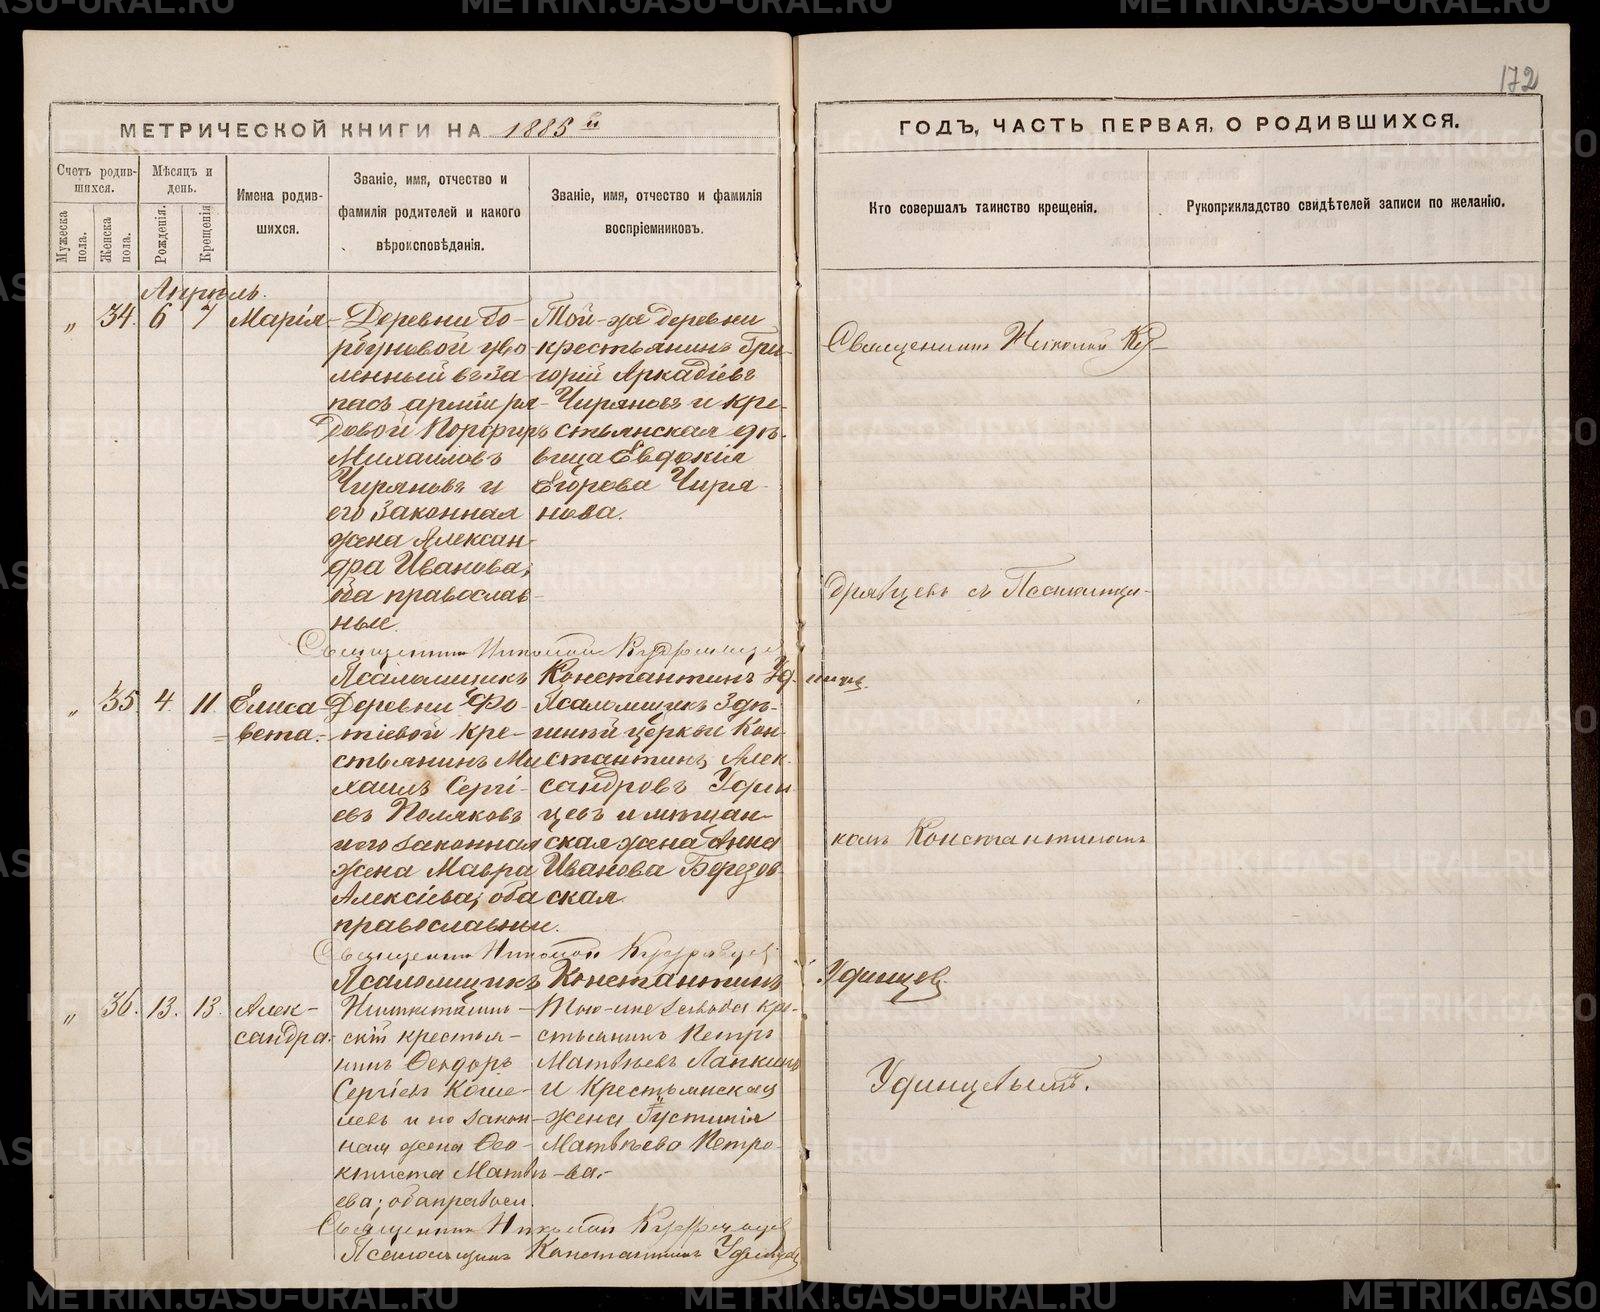 172
МЕТРИЧЕСКОЙ КНИГИ НА 1885 й
ГОДЪ, ЧАСТЬ ПЕРВАЯ, О РОДИВШИХСЯ.
Счетъ родив-
шихся.
Мужеска пола.
Женска пола.
Мѣсяцъ и
день.
Рожденія.
Крещенія
Имена родив-
шихся.
Званіе, имя, отчество и
фамилія родителей и какого
вѣроисповѣданія.
Званіе, имя, отчество и фамилія
воспріемниковъ.
Кто совершалъ таинство крещенія.
Рукоприкладство свидѣтелей записи по желанію.
Апрѣль.
„ 34. 6 7 Марія
Деревни Бо-
рдуновой уво-
ленный въ за-
пасъ арміи ря-
довой Порфиръ
Михаиловъ
Чиряновъ и
его законная
жена Алексан-
дра Иванова,
оба православ-
ные.
Той-же деревни
крестьянинъ Гри-
горій Аркадіевъ
Чиряновъ и кре-
стьянская дѣ-
вица Евдокія
Егорова Чиря-
нова.
Священникъ Николай Кудрявцевъ
Псаломщикъ Константинъ Удинцевъ
„ 35. 4. 11. Елиса-
вета.
Деревни Фо-
тіевой кре-
стьянинъ Ми-
хаилъ Сергі-
евъ Поляковъ
и его законная
жена Мавра
Алексіева; оба
православные.
Псаломщикъ Здѣ-
шней церкви Кон-
стантинъ Алек-
сандровъ Удин-
цевъ и мѣщан-
ская жена Анна
Иванова Березов-
ская
Священникъ Николай Кудрявцевъ
Псаломщикъ Константинъ Удинцевъ
„ 36. 13. 13. Алек-
сандра.
скій крестья-
нинъ Ѳеодоръ
Сергіевъ Коше-
левъ и его закон-
ная жена Ѳео-
ктиста Матвѣ-
ева; оба правосл.
Того-же завода кре-
стьянинъ Петръ
Матвѣевъ Лапкинъ
и крестьянская
жена Іустинія
Матвѣева Петро-
ва.
Священникъ Николай Кудрявцевъ
Псаломщикъ Константинъ Удинцевъ
Священникъ Николай Ку-
дрявцевъ съ Псаломщи-
комъ Константиномъ
Удинцевымъ.
METRIKI.GASO-URAL.RU